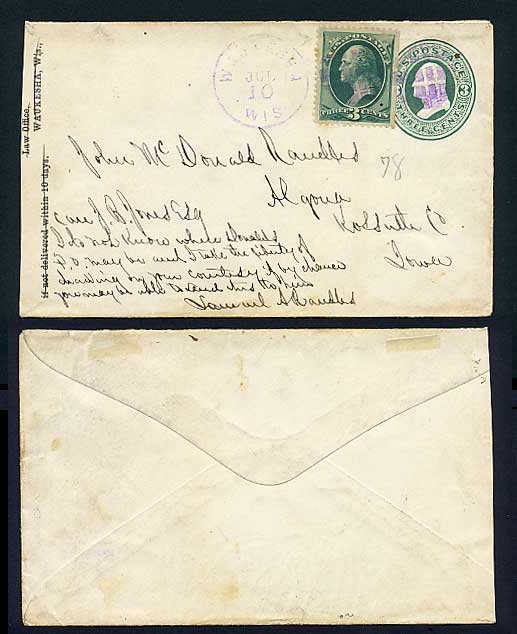 Law Office,
WAUKESHA, Wis.,
If not delivered within 10 days.
WAUKESHA
JUL
10
WIS
U.S. POSTAGE
THREE 3 CENTS
U.S. POSTAGE
THREE CENTS
3
John McDonald Randles
78
Algona
Kossuth Co.
Iowa
care J. B. Jones Esq
I do not know where Donalds
P.O. may be and I take the liberty of
drawing on your courtesy if by chance
you may be able to send this to him
Samuel A Randles